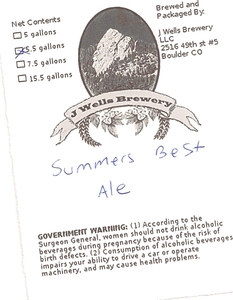 Net Contents
5 gallons
5.5 gallons
7.5 gallons
15.5 gallons
Brewed and
Packaged By:
J Wells Brewery
LLC
2516 49th st #5
Boulder CO
J Wells Brewery
Summers Best
Ale
GOVERNMENT WARNING: (1) According to the
Surgeon General, women should not drink alcoholic
beverages during pregnancy because of the risk of
birth defects. (2) Consumption of alcoholic beverages
impairs your ability to drive a car or operate
machinery, and may cause health problems.